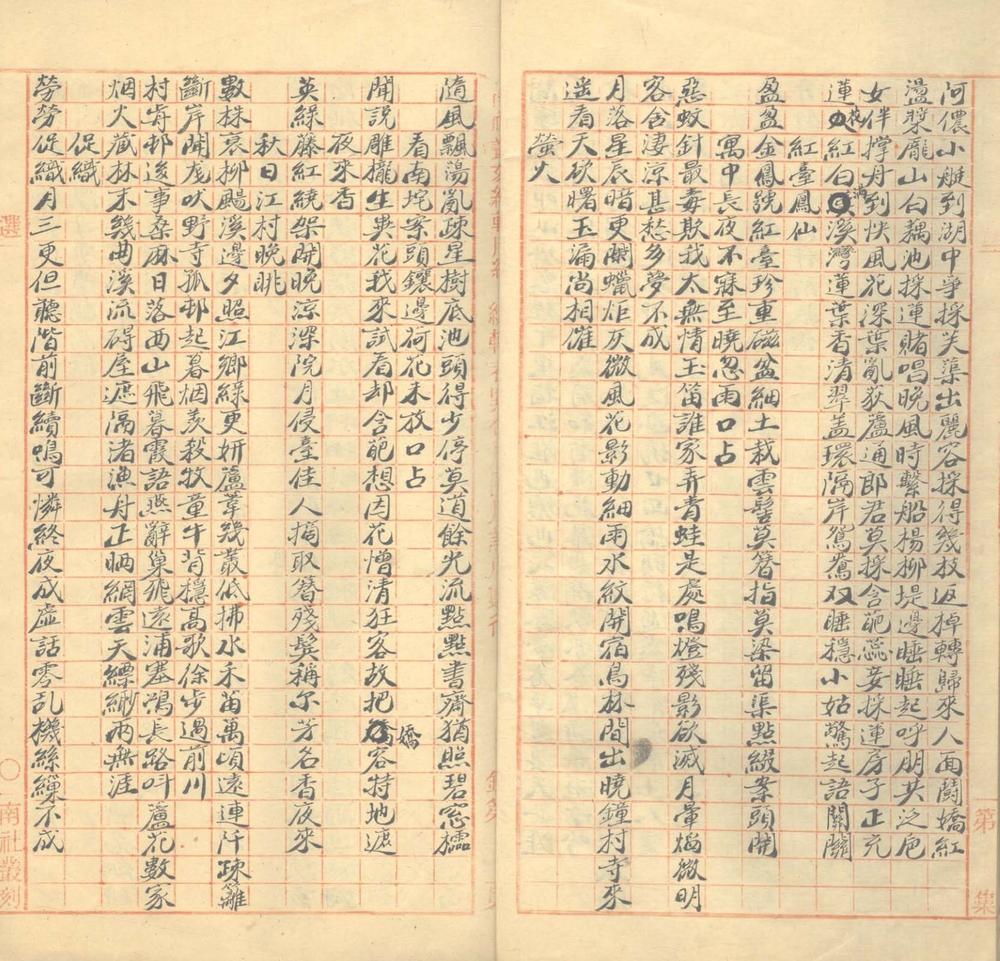 阿儂小艇到湖中爭採芙蕖出麗容採得幾枝返棹轉歸來人面鬪嬌紅
盪槳龐山白藕池採蓮賭唱晚風時繫船楊柳堤邊睡睡起呼朋共泛卮
女伴撐舟到怏風花深葉亂荻蘆通郎君莫採含葩蕊妾採蓮房子正充
蓮紅白滿溪灣蓮葉香清翠盖環隔岸鴛鴦双睡穩小姑驚起語關關
紅臺鳳仙
盈盈金鳳號紅臺珍重磁盆細土栽雲髻莫簪指莫染留渠點綴案頭開
寓中長夜不寐至曉忽雨口占
惡蚊針最毒欺我太無情玉笛誰家弄青蛙是處鳴燈殘影欲滅月暈熖微明
客舍淒涼甚愁多夢不成
月落星辰暗更闌蠟炬灰微風花影動細雨水紋開宿鳥林間出曉鐘村寺來
遥看天欲曙玉漏尚相催
螢火
隨風飄湯亂疎星樹底池頭得少停莫道餘光流點點書齋猶照碧窓櫺
看南垞案頭鑲邊荷花未放口占
聞說雕攏生異花我來試看却含葩想因花憎清狂客故把嬌容特地遮
夜來香
英綠藤紅繞架開晚涼深院月侵臺佳人摘取簪殘鬓稱尔芳名香夜來
秋日江村晚眺
數株哀柳颺溪邊夕照江鄉綠更妍蘆葦幾叢低拂水禾苗萬頃遠連阡疎籬
斷岸聞尨吠野寺孤邨起暮烟羨殺牧童牛背穩高歌徐步過前川
村歬邨後事桑麻日落西山飛暮霞語燕辭巢飛遠浦塞鴻長路呌蘆花數家
烟火藏林末幾曲溪流碍屋遮隔渚漁舟正晒網雲天縹緲兩無涯
促織
勞勞促織月三更但聽堦前斷續鳴可憐終夜成虛話零乱機絲繅不成
選
南社叢刻
第
集